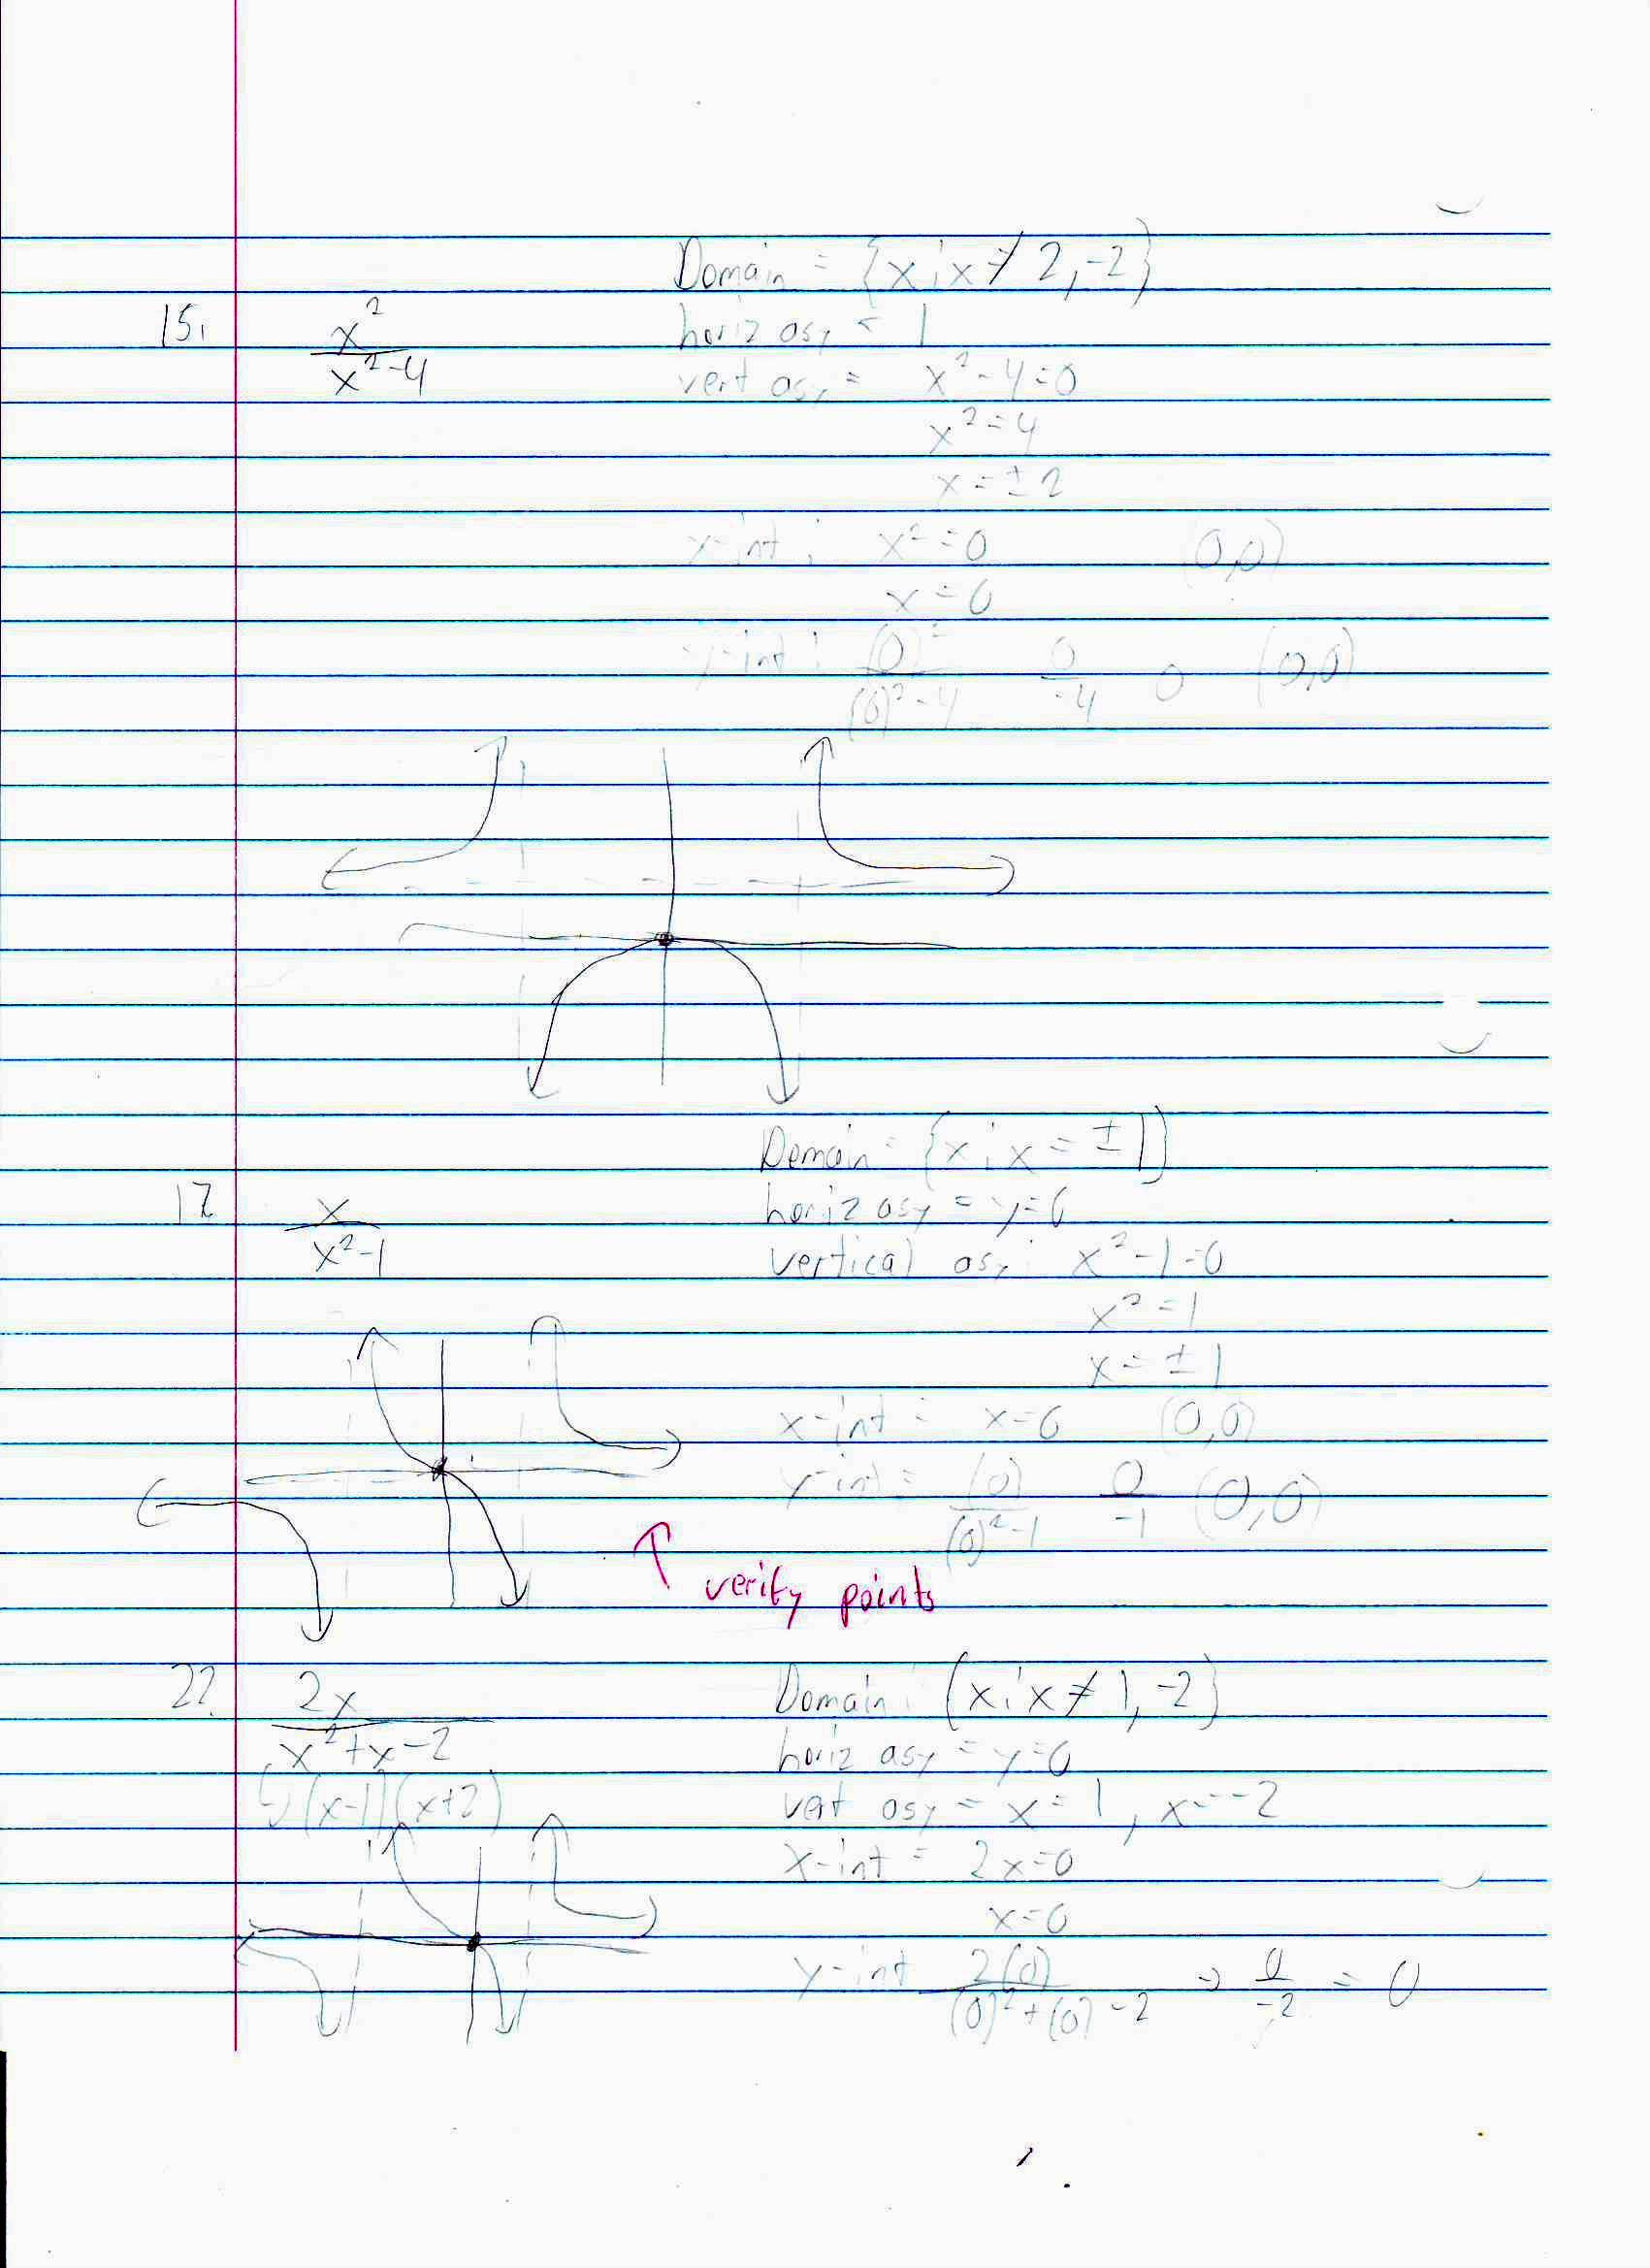 Domain = {x : x ≠ 2, -2}
15. x²/(x²-4) horiz asy = 1
vert asy = x²-4=0
x²=4
x=±2
x-int : x²=0 (0,0)
x=0
y-int : (0)²/((0)²-4) 0/-4 0 (0,0)
Domain = {x : x = ±1}
17 x/(x²-1) horiz asy = y=0
vertical asy : x²-1=0
x²=1
x=±1
x-int = x=0 (0,0)
y-int = (0)/((0)²-1) 0/-1 (0,0)
verify points
22. 2x/(x²+x-2) Domain : {x : x ≠ 1, -2}
horiz asy = y=0
(x-1)(x+2) vert asy = x=1, x=-2
x-int = 2x=0
x=0
y-int 2(0)/((0)²+(0)-2) → 0/-2 = 0